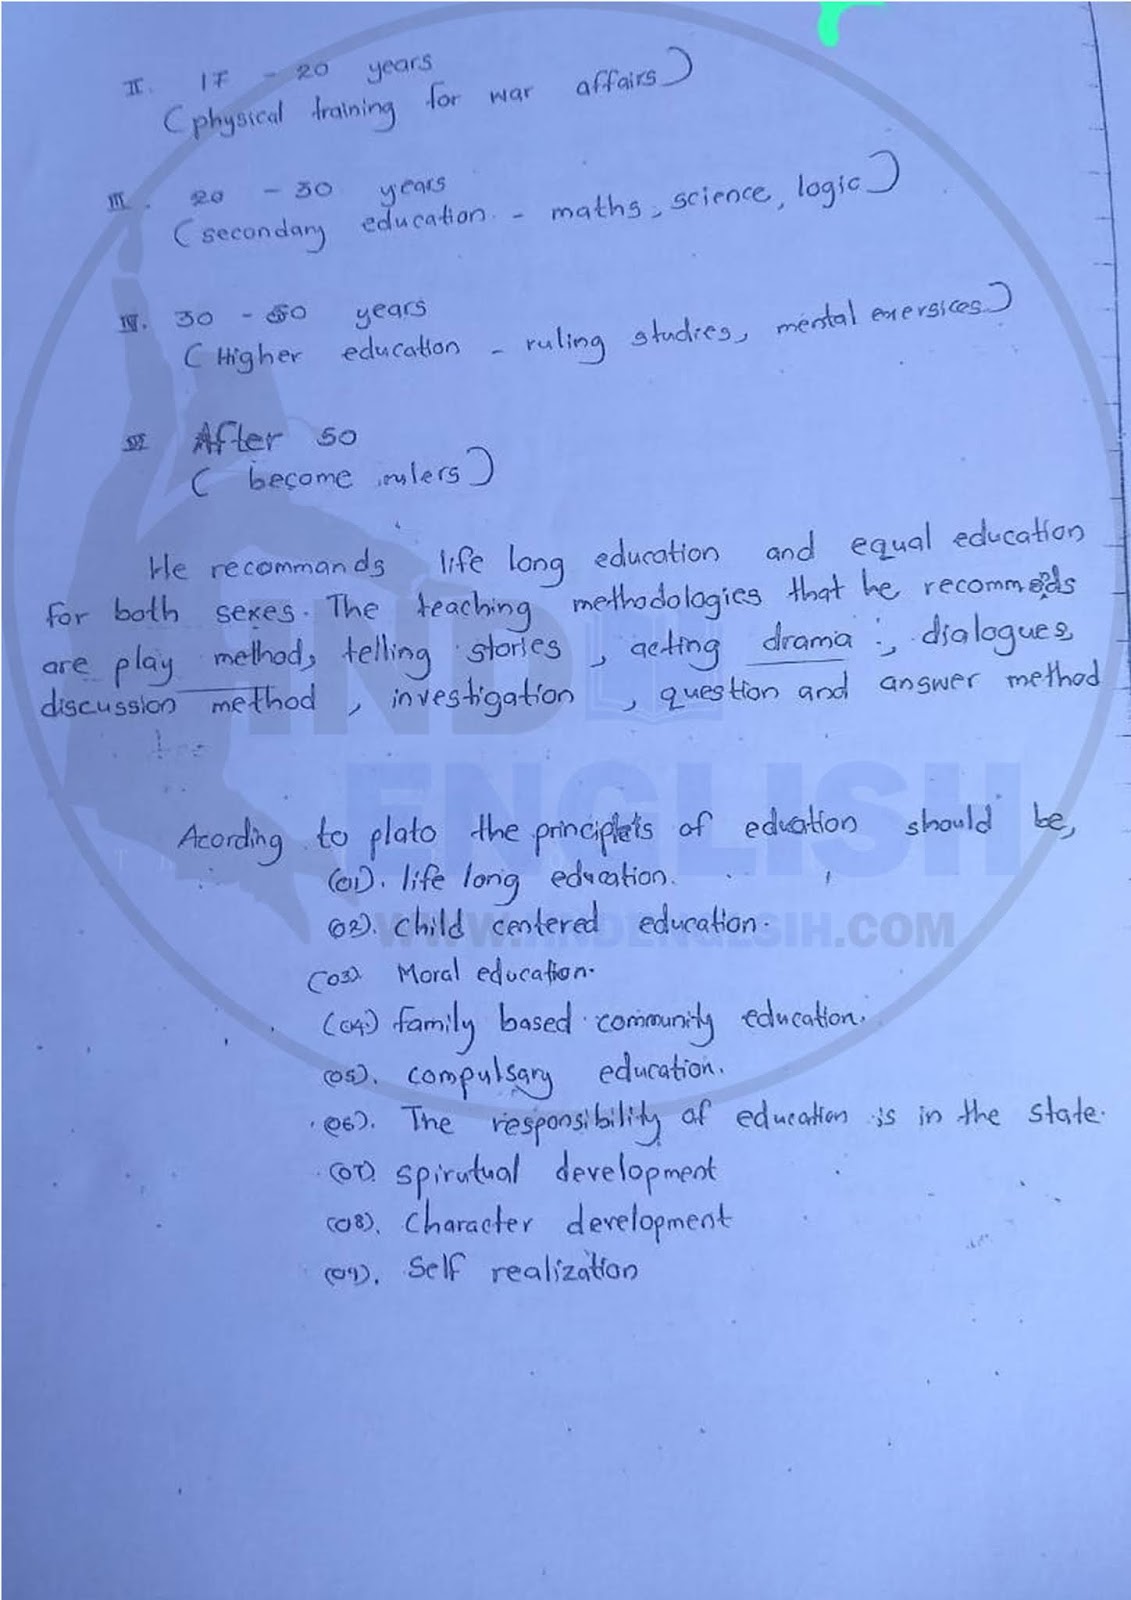 II. 17 - 20 years
(physical training for war affairs)
III. 20 - 30 years
(secondary education - maths, science, logic)
IV. 30 - 50 years
(Higher education - ruling studies, mental exersices)
After 50
(become rulers)
He recommands life long education and equal education
for both sexes. The teaching methodologies that he recommends
are play method, telling stories, acting drama, dialogues,
discussion method, investigation, question and answer method
IND
ENGLISH
Acording to plato the principles of eduation should be,
(01). life long education.
(02). Child centered education.
WWW.INDENGLSIH.COM
(03). Moral education.
(04) family based community education.
(05). compulsary education.
(06). The responsibility of education is in the state.
(07) spirutual development
(08). Character development
(09). Self realization